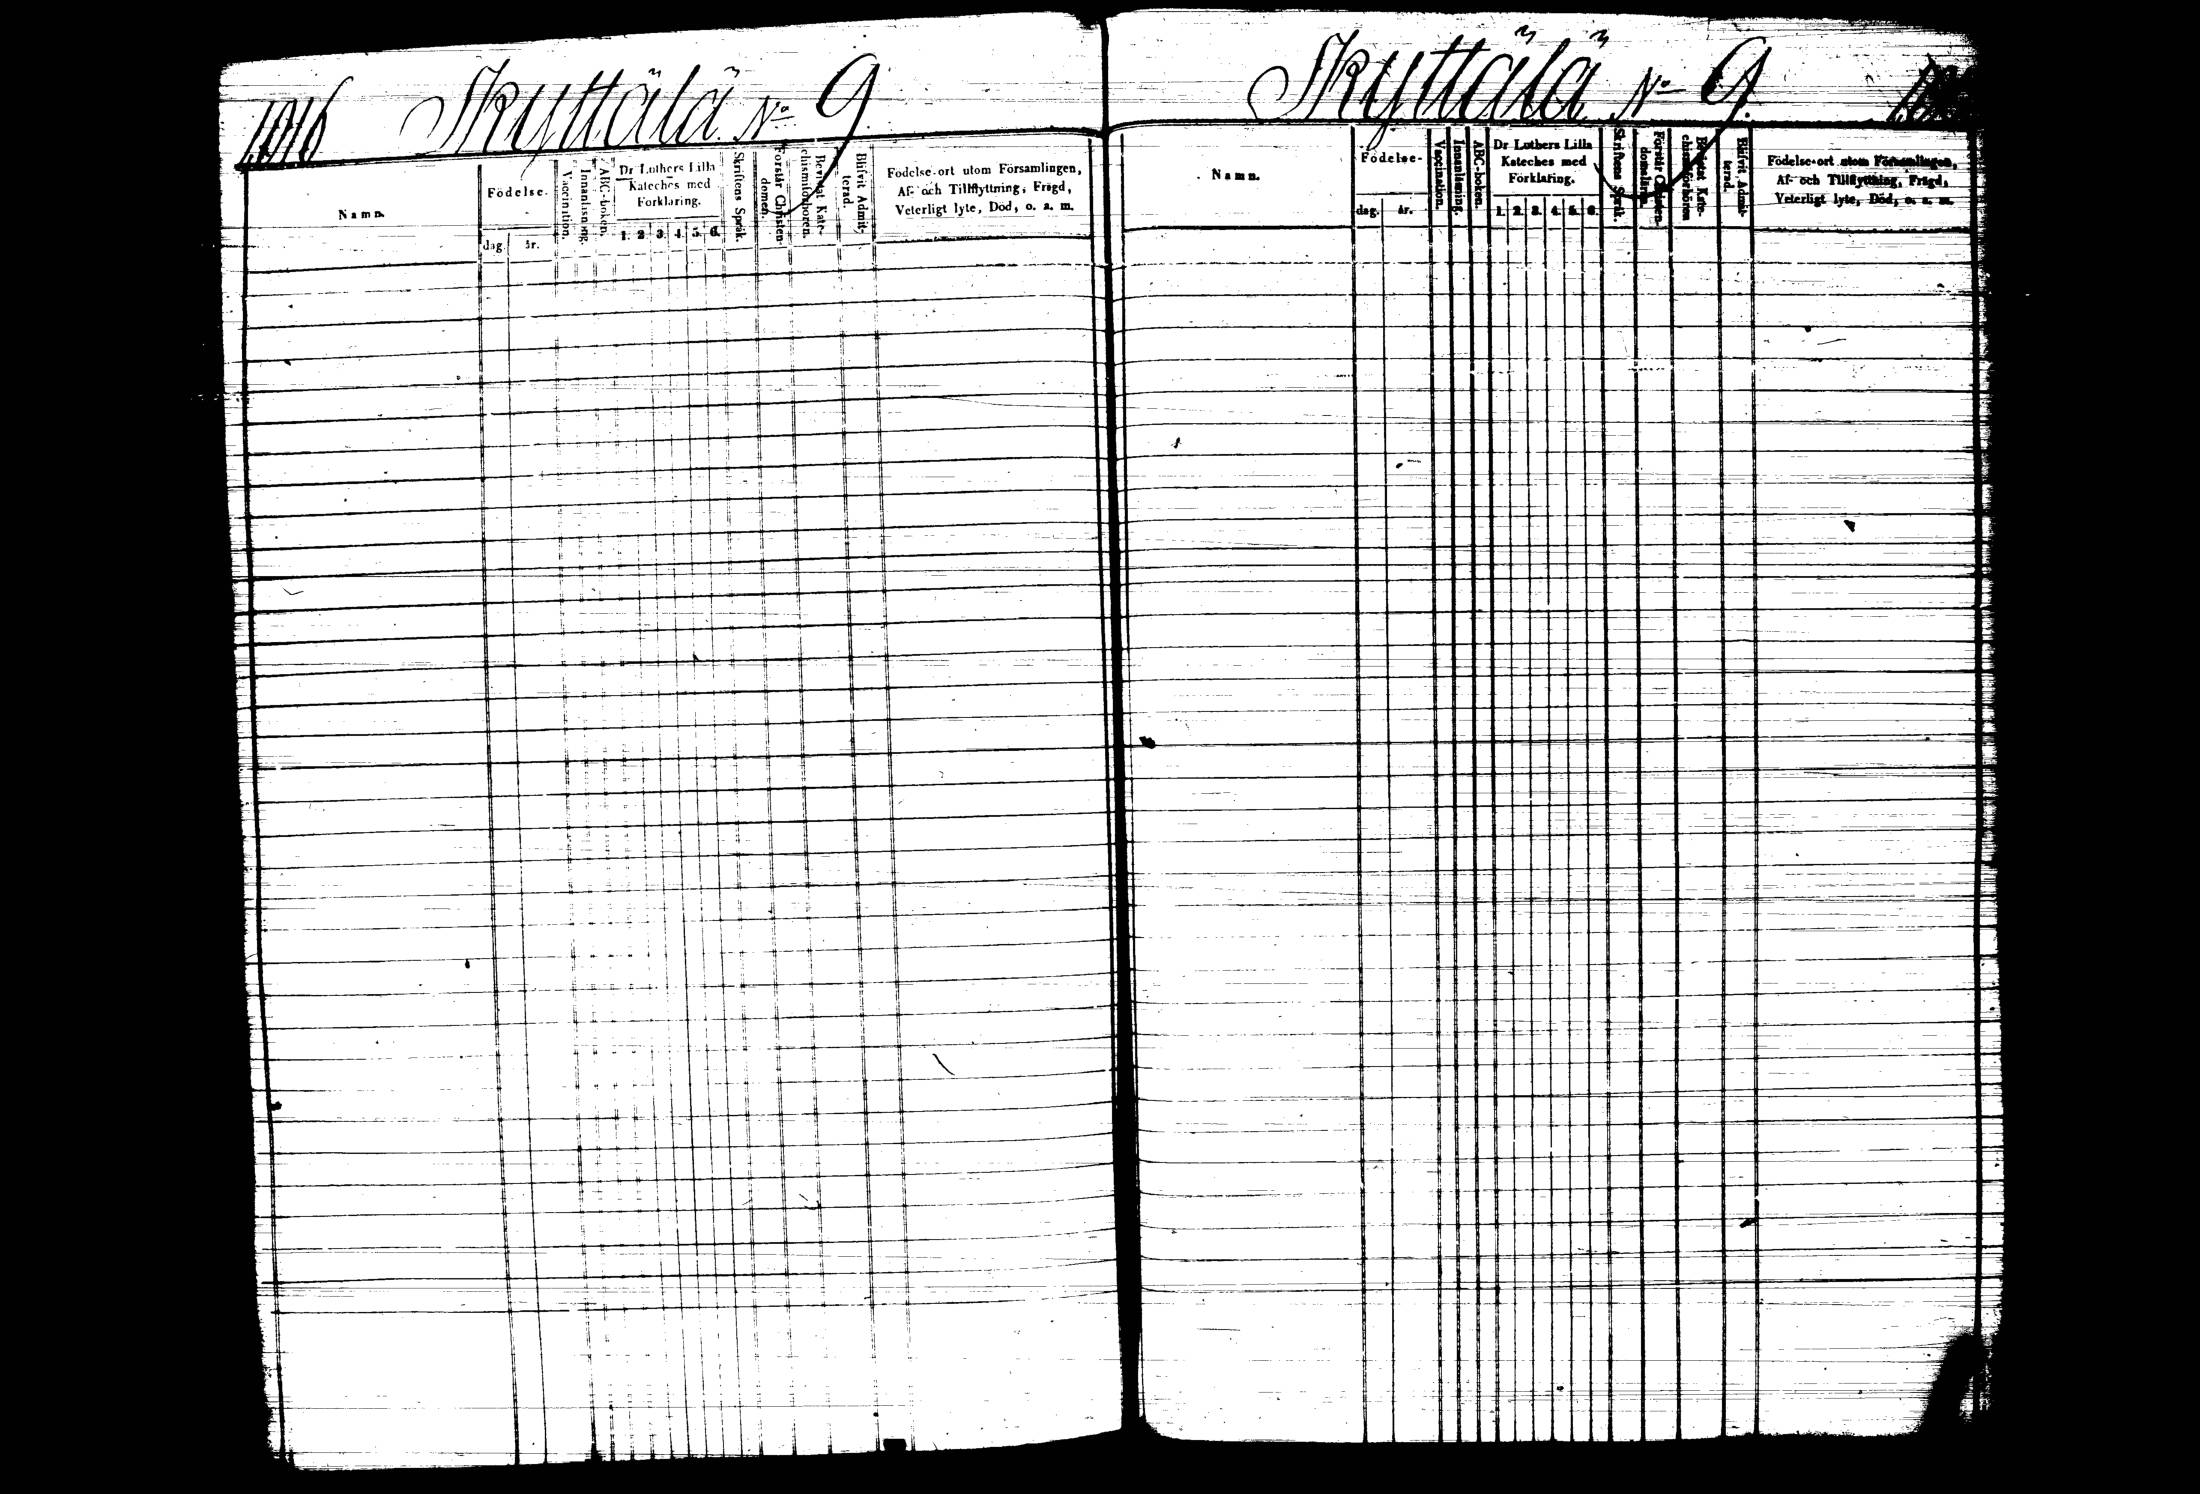 1016 Skyttälä No 9
Namn.
Födelse-
dag. år.
Vaccination.
Innanläsning.
ABC-boken.
Dr Luthers Lilla
Kateches med
Förklaring.
1. 2. 3. 4. 5. 6.
Skriftens Språk.
Förstår Christen-
domen.
Bevistat Kate-
chismiförhören.
Blifvit Admit-
terad.
Födelse-ort utom Församlingen,
Af- och Tillflyttning, Frägd,
Veterligt lyte, Död, o. s. m.
Skyttälä No 9.
Namn.
Födelse-
dag. år.
Vaccination.
Innanläsning.
ABC-boken.
Dr Luthers Lilla
Kateches med
Förklaring.
1. 2. 3. 4. 5. 6.
Skriftens Språk.
Förstår Christen-
Bevistat Kate-
Blifvit Admit-
terad.
Födelse-ort utom Församlingen,
Af- och Tillflyttning, Frägd,
Veterligt lyte, Död, o. s. m.